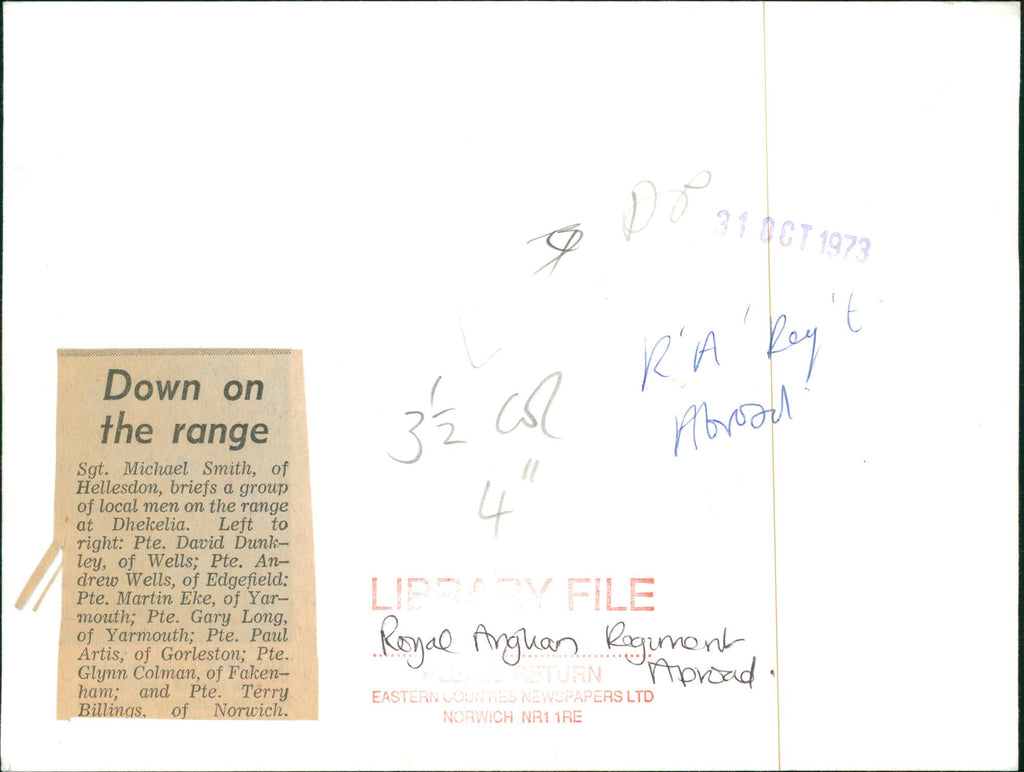 31 OCT 1973
R'A' Reg't
Abroad
3½ col
4"
Down on
the range
Sgt. Michael Smith, of
Hellesdon, briefs a group
of local men on the range
at Dhekelia. Left to
right: Pte. David Dunk-
ley, of Wells; Pte. An-
drew Wells, of Edgefield;
Pte. Martin Eke, of Yar-
mouth; Pte. Gary Long,
of Yarmouth; Pte. Paul
Artis, of Gorleston; Pte.
Glynn Colman, of Faken-
ham; and Pte. Terry
Billings, of Norwich.
LIBRARY FILE
Royal Anglian Regiment
Abroad.
PLEASE RETURN
EASTERN COUNTIES NEWSPAPERS LTD
NORWICH NR1 1RE